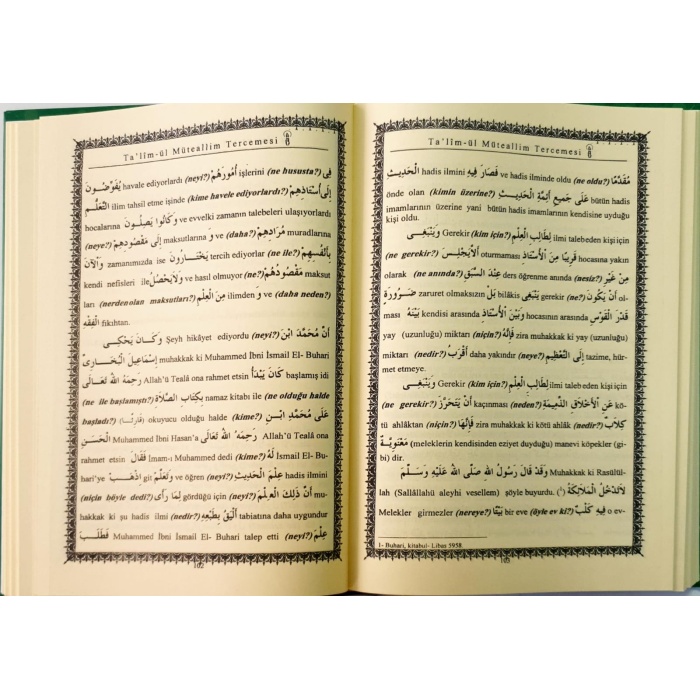 Ta'lîm-ül Müteallim Tercemesi
فِي (ne hususta?) أُمُورَهُمْ işlerini (neyi?) havale ediyorlardı يُفَوِّضُونَ
إِلَى أُسْتَاذِهِمْ (kime havale ediyorlardı?) ilim tahsil etme işinde التَّعَلُّمِ
hocalarına وَكَانُوا يَصِلُونَ ve evvelki zamanın talebeleri ulaşıyorlardı
(neye?) إِلَى مَقْصُودِهِمْ maksutlarına و ve (daha?) مُرَادِهِمْ muradlarına
وَالْآنَ zamanımızda ise يَخْتَارُونَ tercih ediyorlar (ne ile?) بِأَنْفُسِهِمْ
kendi nefisleri ile وَلَا يَحْصُلُ ve hasıl olmuyor (ne?) مَقْصُودُهُمْ maksut
ları (nerden olan maksutları?) مِنَ الْعِلْمِ ilimden و ve (daha neden?)
الْفِقْهِ fıkıhtan.
وَكَانَ يَحْكِي Şeyh hikâyet ediyordu (neyi?) أَنَّ مُحَمَّدَ ابْنَ
إِسْمَاعِيلَ الْبُخَارِيَّ muhakkak ki Muhammed İbni İsmail El- Buhari
رَحِمَهُ اللهُ تَعَالَى Allah'ü Teala ona rahmet etsin كَانَ يَبْدَأُ başlamış idi
(ne ile başlamıştı?) بِكِتَابِ الصَّلَاةِ namaz kitabı ile (ne olduğu halde
başladı?) okuyucu olduğu halde (kime?) عَلَى مُحَمَّدِ ابْنِ
الْحَسَنِ Muhammed İbni Hasan'a رَحِمَهُ اللهُ تَعَالَى Allah'ü Teala ona
rahmet etsin فَقَالَ İmam-ı Muhammed dedi (kime?) لَهُ İsmail El- Bu-
hari'ye اِذْهَبْ git وَتَعَلَّمْ ve öğren (neyi?) عِلْمَ الْحَدِيثِ hadis ilmini
(niçin böyle dedi?) لِمَا رَأَى gördüğü için (neyi?) أَنَّ ذَلِكَ الْعِلْمَ mu-
hakkak ki şu hadis ilmi (nedir?) أَلْيَقُ بِطَبْعِهِ tabiatına daha uygundur
فَطَلَبَ Muhammed İbni İsmail El- Buhari talep etti (neyi?) عِلْمَ
102
Ta'lîm-ül Müteallim Tercemesi
الْحَدِيثِ hadis ilmini فَصَارَ فِيهِ ve hadis ilminde oldu (ne oldu?) مُقَدَّمًا
önde olan (kimin üzerine?) عَلَى جَمِيعِ أَئِمَّةِ الْحَدِيثِ bütün hadis
imamlarının üzerine yani bütün hadis imamlarının kendisine uyduğu
kişi oldu.
وَيَنْبَغِي Gerekir (kim için?) لِطَالِبِ الْعِلْمِ ilmi talebeden kişi için
(ne gerekir?) أَنْ لَا يَجْلِسَ oturmaması قَرِيبًا مِنَ الْأُسْتَاذِ hocasına yakın
olarak (ne anında?) عِنْدَ السَّبَقِ ders öğrenme anında (nesiz?) مِنْ غَيْرِ
ضَرُورَةٍ zaruret olmaksızın بَلْ bilâkis يَنْبَغِي gerekir (ne?) أَنْ يَكُونَ ol-
ması بَيْنَهُ kendisi arasında وَبَيْنَ الْأُسْتَاذِ hocasının arasında قَدْرَ الْقَوْسِ
yay (uzunluğu) miktarı (niçin?) فَإِنَّهُ zira muhakkak ki yay (uzunluğu)
miktarı (nedir?) أَقْرَبُ daha yakındır (neye?) إِلَى التَّعْظِيمِ tazime, hür-
met etmeye.
وَيَنْبَغِي Gerekir (kim için?) لِطَالِبِ الْعِلْمِ ilmi talebeden kişi için
(ne gerekir?) أَنْ يَتَحَرَّزَ kaçınması (neden?) عَنِ الْأَخْلَاقِ الذَّمِيمَةِ kö-
tü ahlâktan (niçin?) فَإِنَّهَا zira muhakkak ki kötü ahlâk (nedir?) كِلَابٌ
مَعْنَوِيَّةٌ (meleklerin kendisinden eziyet duyduğu) manevi köpekler (gi-
bi) dir.
وَقَدْ قَالَ رَسُولُ اللهِ صَلَّى اللهُ عَلَيْهِ وَسَلَّمَ Muhakkak ki Rasülül-
lah (Sallâllahü aleyhi vesellem) şöyle buyurdu. (¹) لَا تَدْخُلُ الْمَلَائِكَةُ
Melekler girmezler (nereye?) بَيْتًا bir eve (öyle ev ki?) فِيهِ كَلْبٌ o ev-
1- Buhari, kitabul- Libas 5958
103